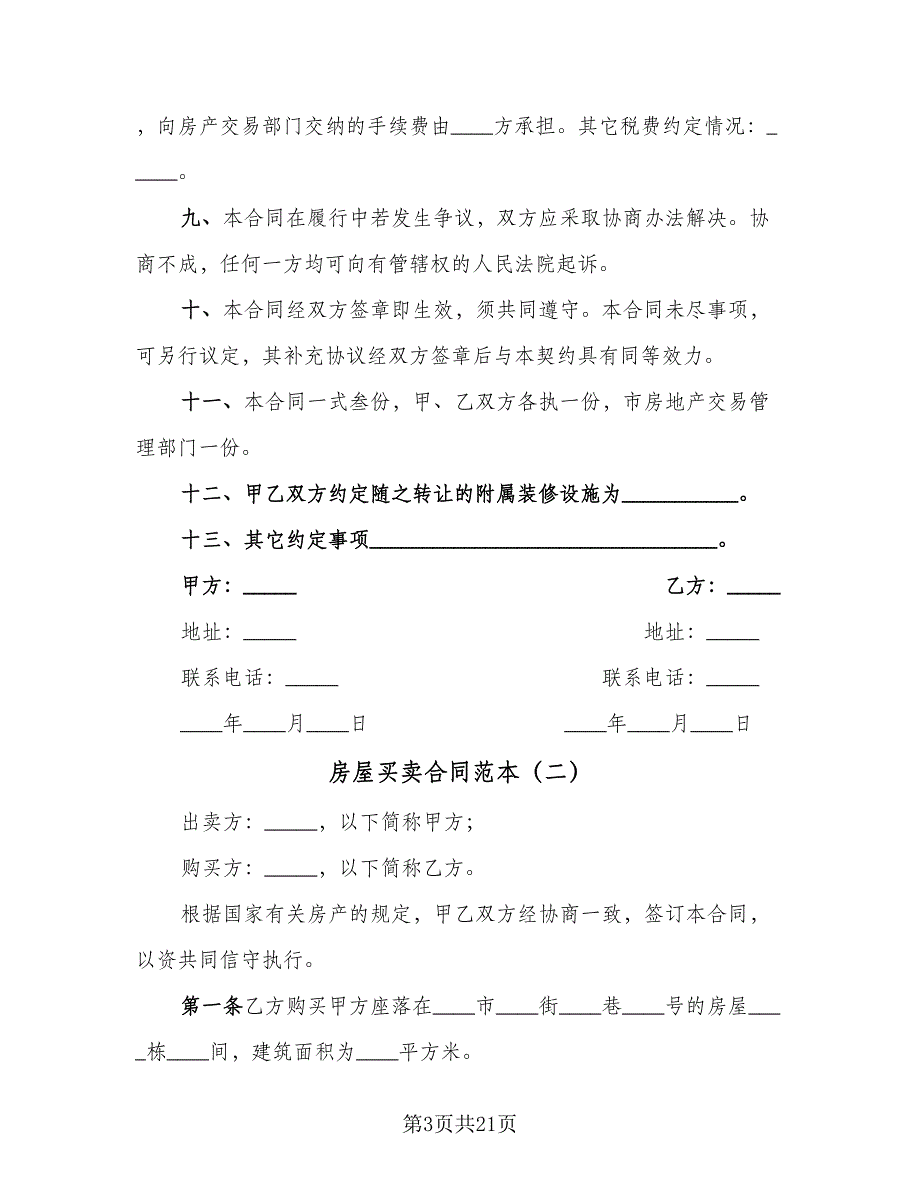 ，向房产交易部门交纳的手续费由____方承担。其它税费约定情况：_
____。
九、本合同在履行中若发生争议，双方应采取协商办法解决。协
商不成，任何一方均可向有管辖权的人民法院起诉。
十、本合同经双方签章即生效，须共同遵守。本合同未尽事项，
可另行议定，其补充协议经双方签章后与本契约具有同等效力。
十一、本合同一式叁份，甲、乙双方各执一份，市房地产交易管
理部门一份。
十二、甲乙双方约定随之转让的附属装修设施为___________。
十三、其它约定事项_________________________________。
甲方：_____ 乙方：_____
地址：_____ 地址：_____
联系电话：_____ 联系电话：_____
____年____月____日 ____年____月____日
房屋买卖合同范本（二）
出卖方：_____，以下简称甲方；
购买方：_____，以下简称乙方。
根据国家有关房产的规定，甲乙双方经协商一致，签订本合同，
以资共同信守执行。
第一条乙方购买甲方座落在____市____街____巷____号的房屋___
_栋____间，建筑面积为____平方米。
第3页共21页